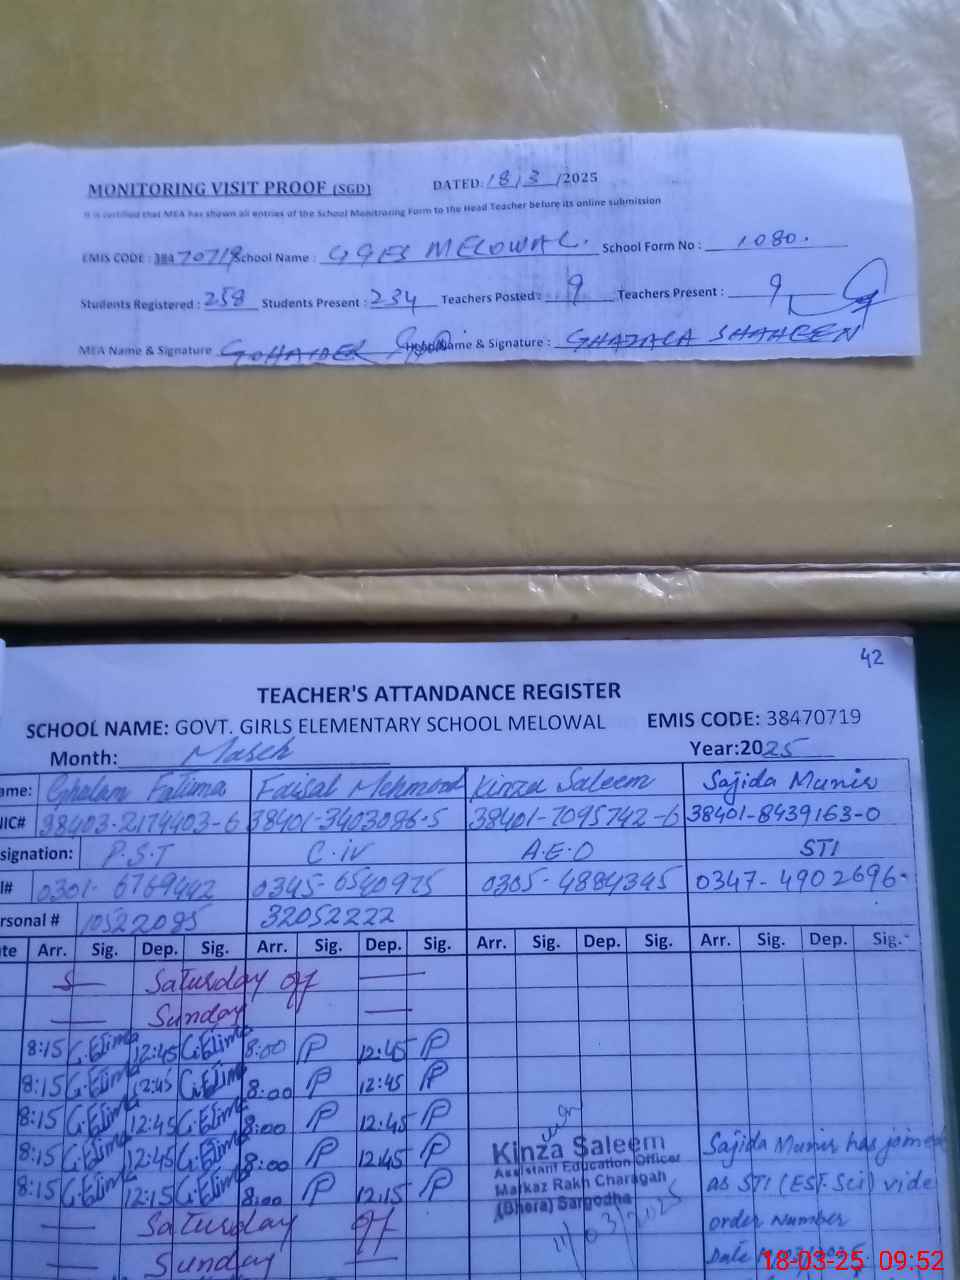 MONITORING VISIT PROOF (SGD) DATED: 18/3/2025
It is certified that MEA has shown all entries of the School Monitoring Form to the Head Teacher before its online submission
EMIS CODE : 38470719 School Name : GGES MELOWAL. School Form No : 1080.
Students Registered : 258 Students Present : 234 Teachers Posted : 9 Teachers Present : 9
MEA Name & Signature Name & Signature : GHAZALA SHAHEEN
42
TEACHER'S ATTANDANCE REGISTER
SCHOOL NAME: GOVT. GIRLS ELEMENTARY SCHOOL MELOWAL EMIS CODE: 38470719
Month: March Year:2025
ame: Ghulam Fatima Faisal Mehmood Kinza Saleem Sajida Munir
IC# 38403-2174403-6 38401-3403086-5 38401-7095742-6 38401-8439163-0
signation: P.S.T C.iv A.E.O STI
l# 0301-6769442 0345-6540975 0305-4884345 0347-4902696
rsonal # 10522085 32052222
te Arr. Sig. Dep. Sig. Arr. Sig. Dep. Sig. Arr. Sig. Dep. Sig. Arr. Sig. Dep. Sig.
S Saturday off
Sunday
8:15 12:45 8:00 P 12:45 P
8:15 12:45 8:00 P 12:45 P
8:15 12:45 8:00 P 12:45 P
8:15 12:45 8:00 P 12:45 P
8:15 12:15 8:00 P 12:15 P
Saturday off
Sunday
Kinza Saleem
Assistant Education Officer
Markaz Rakh Charagah
(Bhera) Sargodha
11/03/2025
Sajida Munir has joined
as STI (EST. Sci) vide
order Number
Date
18-03-25 09:52